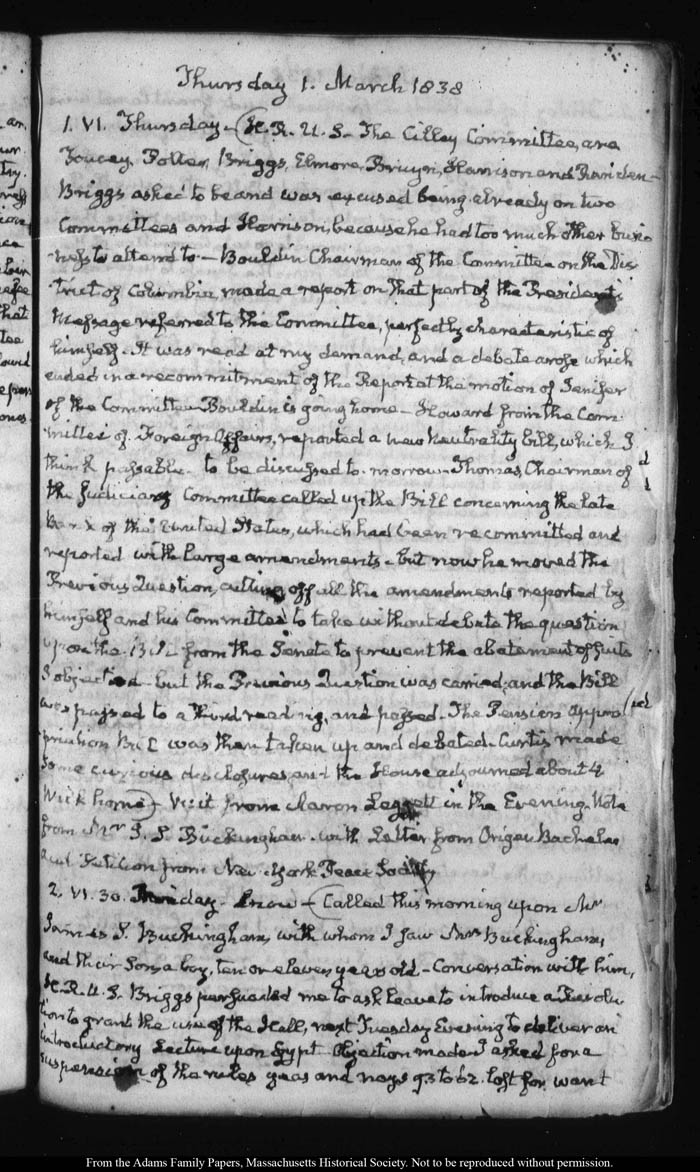 Thursday 1. March 1838
1. VI. Thursday – (H. R. U. S. The Cilley Committee, are
Toucey, Potter, Briggs, Elmore, Bruyn, Harrison and Rariden –
Briggs asked to be and was excused being already on two
Committees and Harrison, because he had too much other busi-
ness to attend to – Bouldin Chairman of the Committee on the Dis-
trict of Columbia, made a report on that part of the President's
Message referred to the Committee, perfectly characteristic of
himself. It was read at my demand, and a debate arose which
ended in a recommitment of the Report at the motion of Jenifer
of the Committee Bouldin is going home – Howard from the Com-
mittee of Foreign Affairs, reported a new Neutrality bill, which I
think passable – to be discussed to-morrow – Thomas, Chairman of
the Judiciary Committee called up the Bill concerning the late
Bank of the United States, which had been recommitted and
reported with large amendments – but now he moved the
Previous Question, cutting off all the amendments reported by
himself and his Committee to take without debate the question
upon the Bill from the Senate to prevent the abatement of suits
I objected – but the Previous Question was carried; and the Bill
was passed to a third reading, and passed. The Pension Appro-
priation Bill was then taken up and debated – Curtis made
some curious disclosures, and the House adjourned about 4
home) – Visit from Aaron Leggett in the Evening. Note
from Mr J. S. Buckingham with Letter from Origen Bacheler
and Petition from New-York Peace Society
2. VI. 30. Friday – Snow – (Called this morning upon Mr
James S. Buckingham, with whom I saw Mrs Buckingham,
and their son a boy, ten or eleven years old – Conversation with him,
H. R. U. S. Briggs persuaded me to ask leave to introduce a Resolu-
tion to grant the use of the Hall, next Tuesday Evening to deliver an
introductory Lecture upon Egypt Objection made I asked for a
suspension of the rules yeas and nays 93 to 62. lost for want